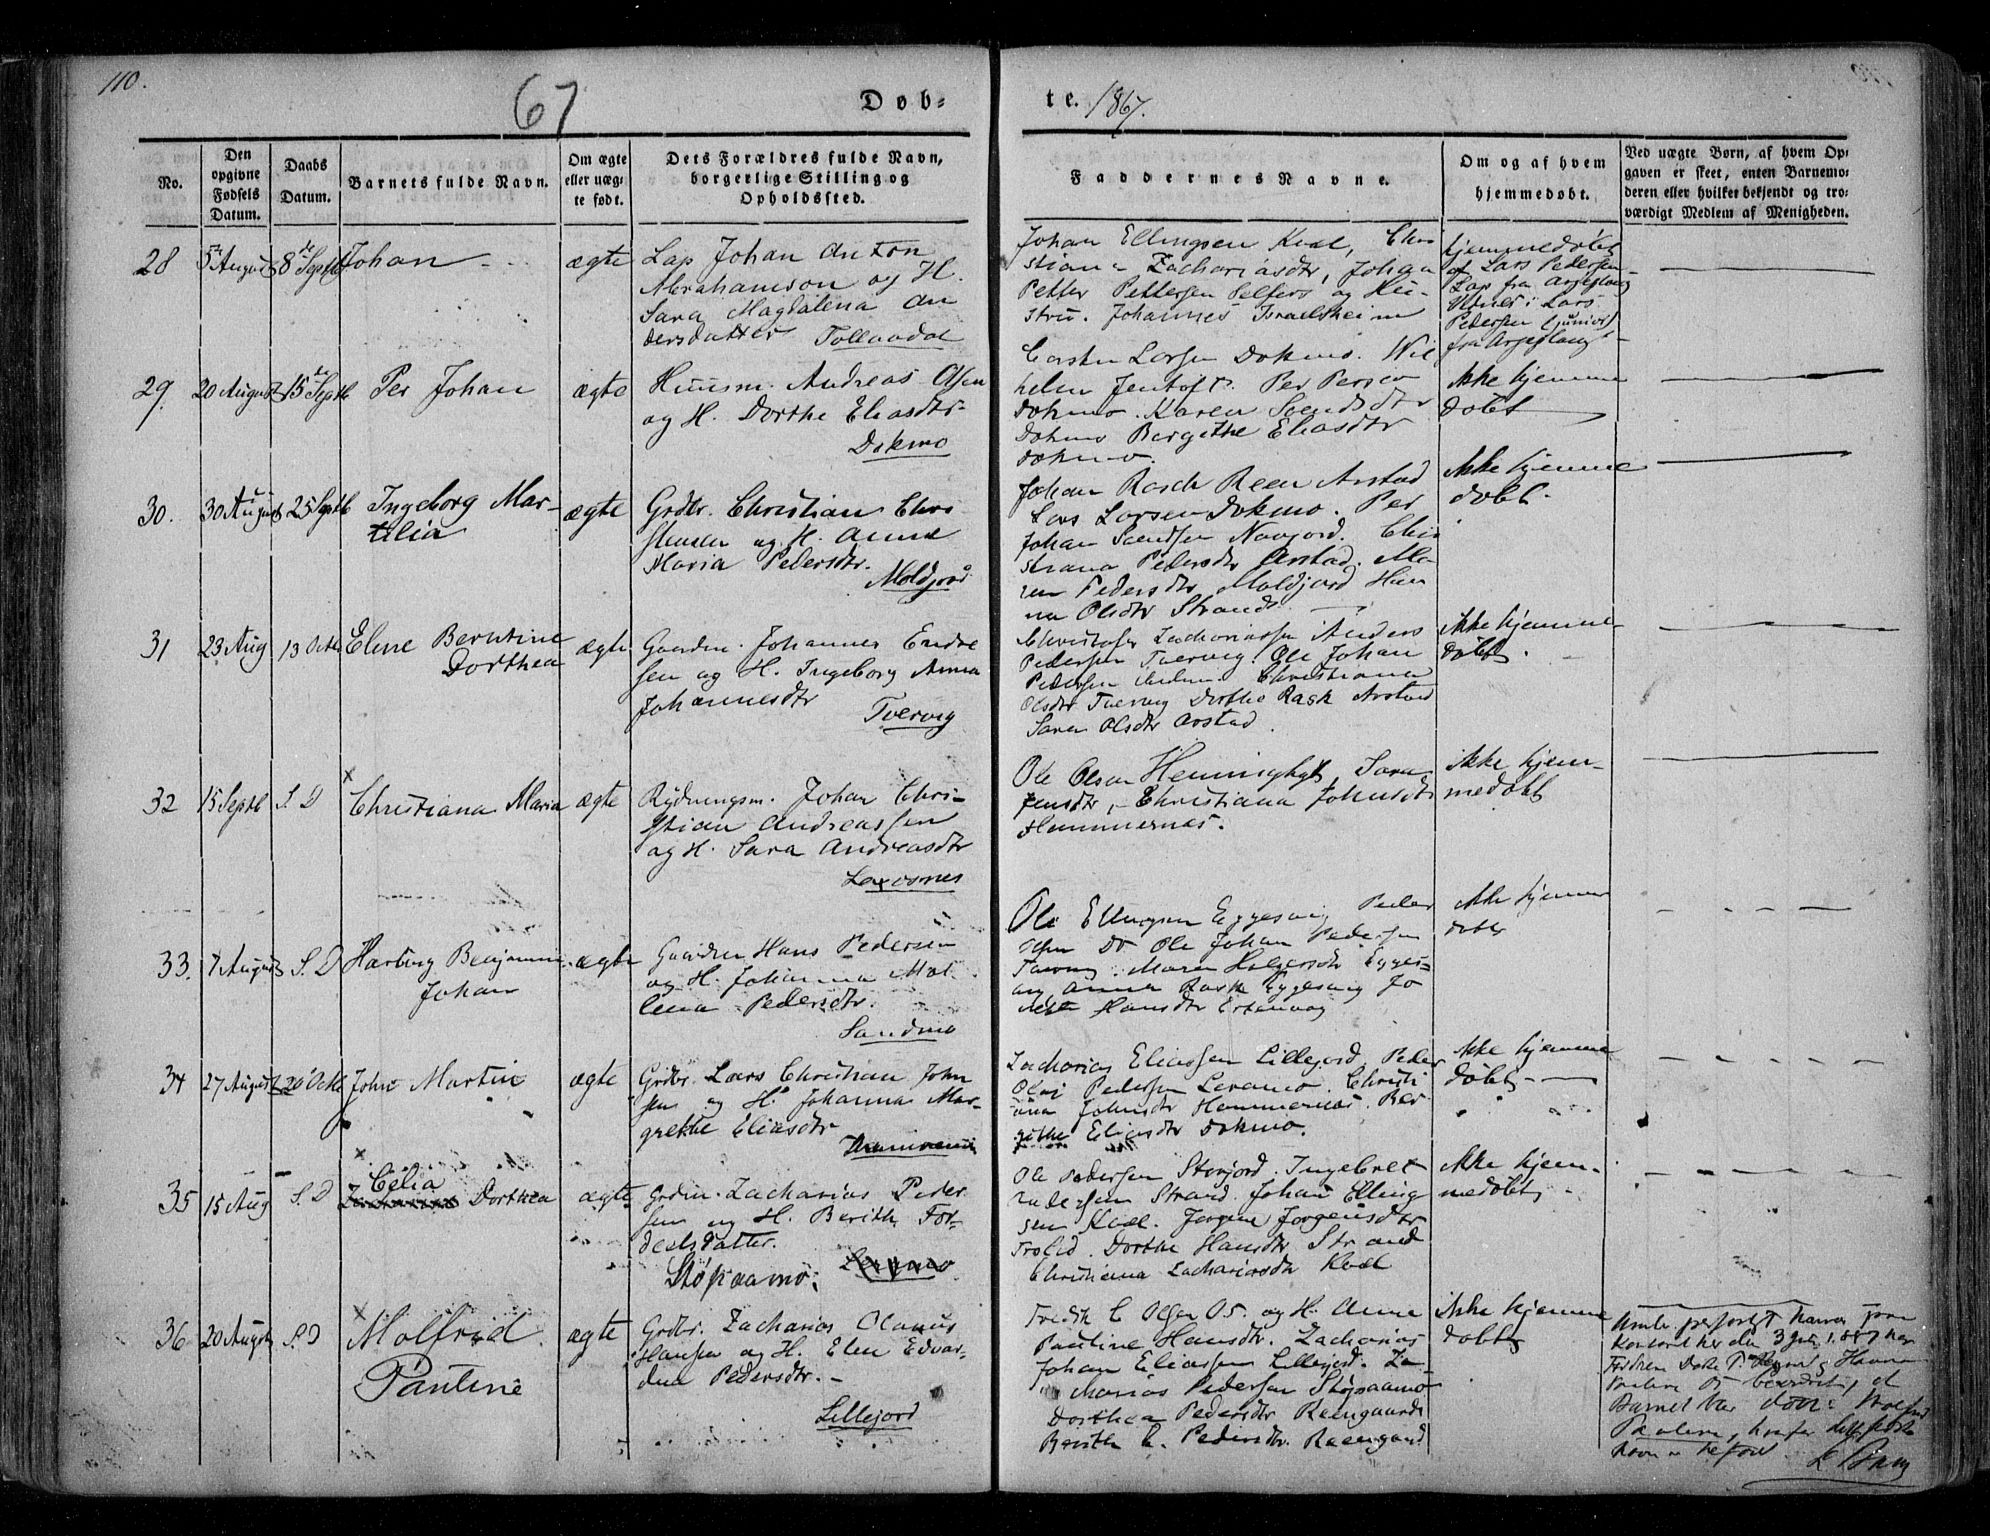 110.
67
Døb-
te. 1867.
No.
Den opgivne Fødsels Datum.
Daabs Datum.
Barnets fulde Navn.
Om ægte eller uægte født.
Dets Forældres fulde Navn, borgerlige Stilling og Opholdssted.
Faddernes Navne.
Om og af hvem hjemmedøbt.
Ved uægte Børn, af hvem Opgaven er skeet, enten Barnemoderen eller hvilket bekjendt og troværdigt Medlem af Menigheden.
28
5te August
8de Septb
Johan
ægte
Lap Johan Anton
Abrahamson og H.
Sara Magdalena An
dersdatter Tollaadal
Johan Ellingsen Kvæl, Chri
stiana Zachariasdtr, Johan
Petter Pettersen Pelfers og Hu-
stru. Johannes Israelsheim
hjemmedøbt
af Lars Pedersen
Lap fra Arjeploug
Vidne: Lars
Pedersen (junior)
fra Arjeploug
29.
20 August
15de Septb
Per Johan
ægte
Huusm. Andreas Olsen
og H. Dorthe Eliasdtr
Dokmo
Carsten Larsen Dokmo. Wil
helm Jentoft. Per Persen
Dokmo. Karen Svendsdtr
Dokmo Bergithe Eliasdtr
Dokmo.
Ikke hjemme
døbt
30.
30 August
25 Septb
Ingeborg Mar-
tilia
ægte
Grdbr. Christian Chri
stensen og H. Anne
Maria Pedersdtr.
Moldjord
Johan Rasch Reen Arstad
Lars Larsen Dokmo. Per
Johan Svendsen Navjord. Chri
stiana Pedersdtr Arstad. Ma
ren Pedersdtr Moldjord Han
na Olsdtr Strand
Ikke hjemme
døbt.
31
23 Aug
13 Octb
Elene Berntine
Dorthea
ægte
Gaardm. Johannes Endre
sen og H. Ingeborg Anna
Johannesdtr
Tvervig
Christofer Zachariassen Anders
Pedersen Tvervig. Ole Johan
Pedersen Christiana
Olsdtr Tvervig Dorthe Rask Arstad
Sara Olsdtr Arstad.
Ikke hjemme-
døbt.
32
15 Septb
S. D
Christiana Maria
ægte
Rydningsm. Johan Chri-
stian Andreassen
og H. Sara Andreasdtr
Laxosnes
Ole Olsen Sara
Jensdtr, Christiana Johnsdtr
Hammernes.
ikke hjem-
medøbt
33.
7 August
S. D
Hartvig Benjamin
Johan
ægte
Gaardm Hans Pedersen
og H. Johanna Mal
lena Pedersdtr.
Sandmo
Ole Ellingsen Eggesvig Peder
Olsen Do Ole Johan Pedersen
Tverv Maren Holgersdtr Egges-
vig Anna Rask Eggesvig Jo
Hansdtr
ikke hjemme
døbt
34
27 August
20 Octb
John Martin
ægte
Grdbr. Lars Christian John
sen og H. Johanna Mar-
grethe Eliasdtr
Zacharias Eliassen Lillejord, Peder
Olai Pedersen Leramo. Christi
ana Johnsdtr Hammernæs. Ber
githe Eliasdtr Dokmo.
ikke hjemme
døbt
35
15 Aug
S. D
Celia
Dorthea
ægte
Grdm. Zacharias Peder
sen og H. Berith For-
delsdatter.
Støpaamo.
Ole Pedersen Storjord. Ingebret
Pedersen Strand. Johan Elling
sen Kvæl. Jørgine Jørgensdtr
Trolid. Dorthe Hansdtr Strand
Christiana Zachariasdtr Kvæl
ikke hjem-
medøbt
36
20 August
S. D
Molfrid
Pauline
ægte
Grdbr. Zacharias Olaus
Hansen og H. Elen Edvar-
dna Pedersdtr.
Lillejord
Fredrik C Olsen Os. og H. Anne
Pauline Hansdtr. Zacharias
Johan Eliassen Lillejord. Za
Marias Pedersen Støpaamo
Dorthea Pedersdtr Reengaard
Berith C. Pedersdtr. Reengaard
Ikke hjemme
døbt
Kontoret her den 3
Barnet var døbt: Molfrid
Pauline,